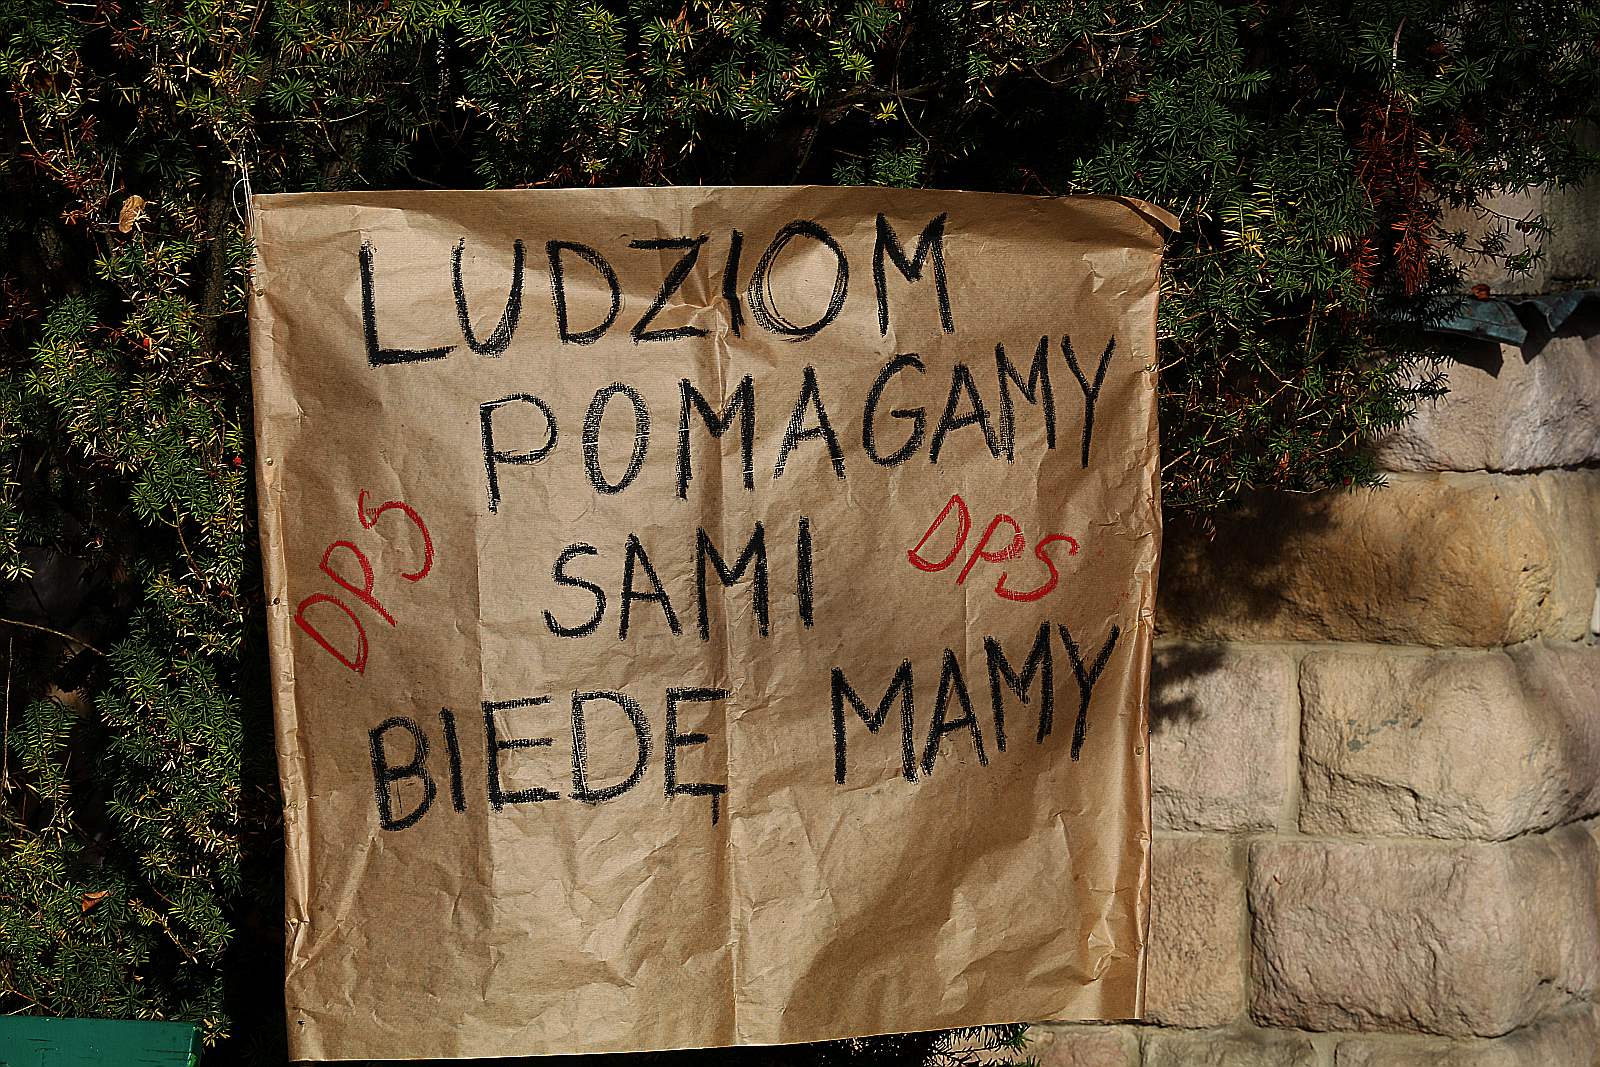 LUDZIOM
POMAGAMY
DPS
SAMI
DPS
BIEDĘ MAMY